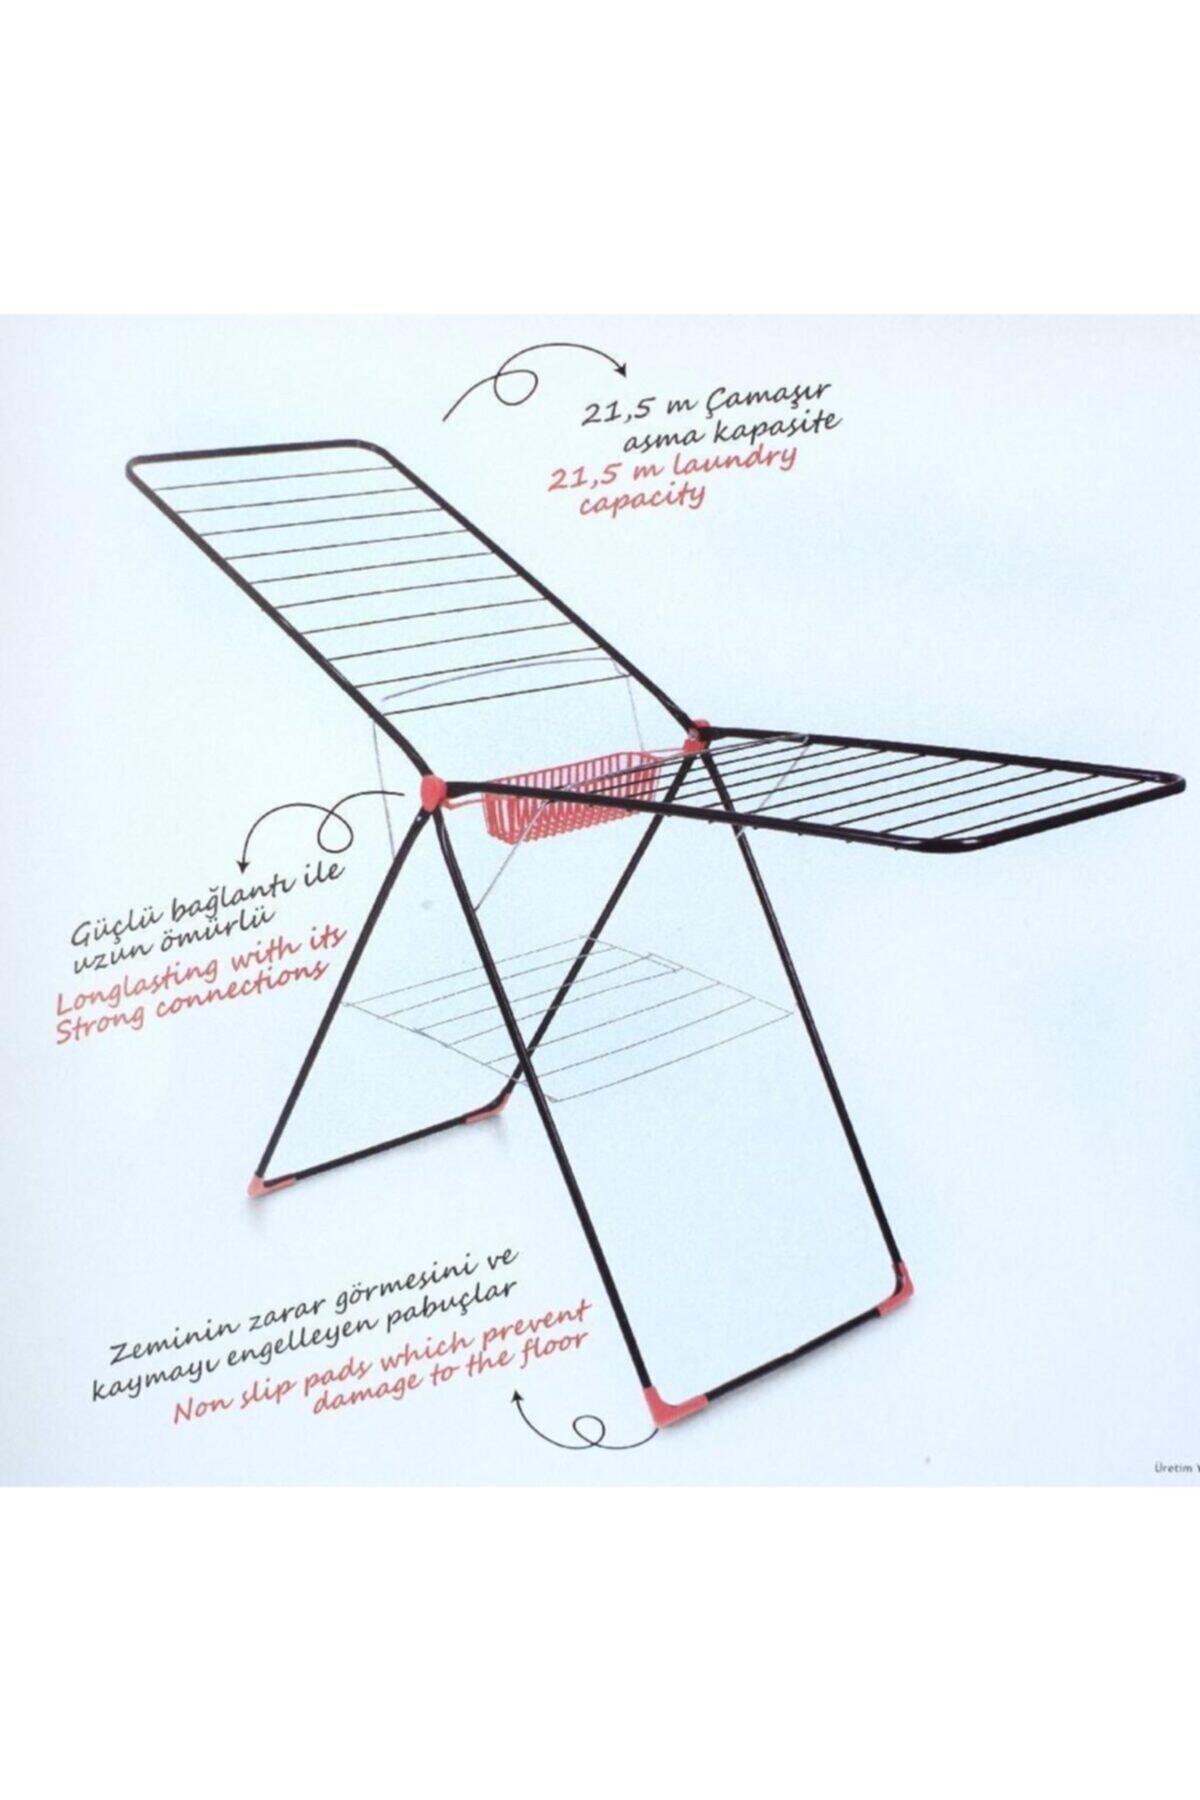 21,5 m Çamaşır
asma kapasite
21,5 m laundry
capacity
Güçlü bağlantı ile
uzun ömürlü
Longlasting with its
Strong connections
Zeminin zarar görmesini ve
kaymayı engelleyen pabuçlar
Non slip pads which prevent
damage to the floor
Üretim Y